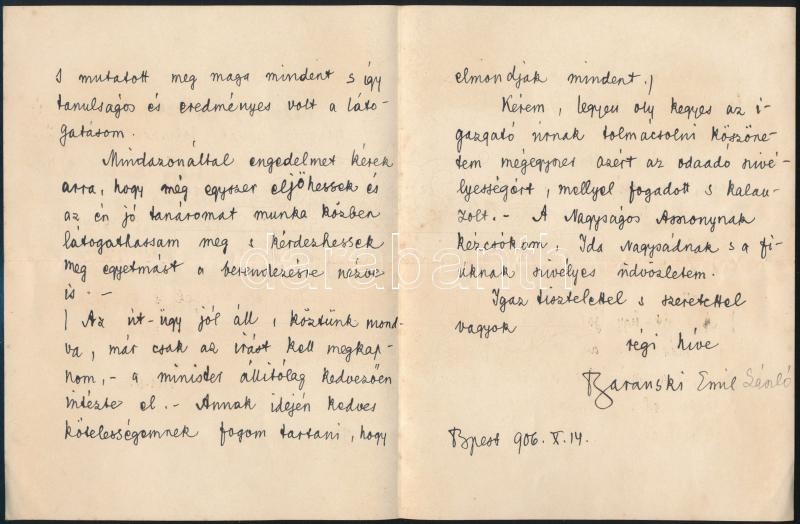 s mutatott meg maga mindent s így
tanulságos és eredményes volt a láto-
gatásom.
Mindazonáltal engedelmet kérek
arra, hogy még egyszer eljöhessek és
az én jó tanáromat munka közben
látogathassam meg s kérdezhessek
meg egyetmást a berendezésre nézve
is. -
/ Az út-ügy jól áll, köztünk mond-
va, már csak az írást kell megkap-
nom, - a minister állitólag kedvezően
intézte el. - Annak idején kedves
kötelességemnek fogom tartani, hogy
elmondjak mindent./
Kérem, legyen oly kegyes az i-
gazgató úrnak tolmácsolni köszöne-
tem mégegyszer azért az odaadó szivé-
lyességért, mellyel fogadott s kalau-
zolt. - A Nagyságos Asszonynak
kézcsókom, Ida Nagysádnak s a fi-
úknak szivélyes üdvözletem.
Igaz tisztelettel s szeretettel
vagyok
régi híve
Baranski Emil László
Bpest 906. X. 14.
darabanth